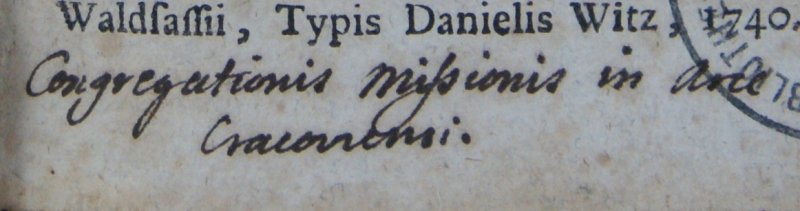 Waldſaſſii, Typis Danielis Witz, 1740.
Congregationis Miſsionis in Arce
Cracoviensi.